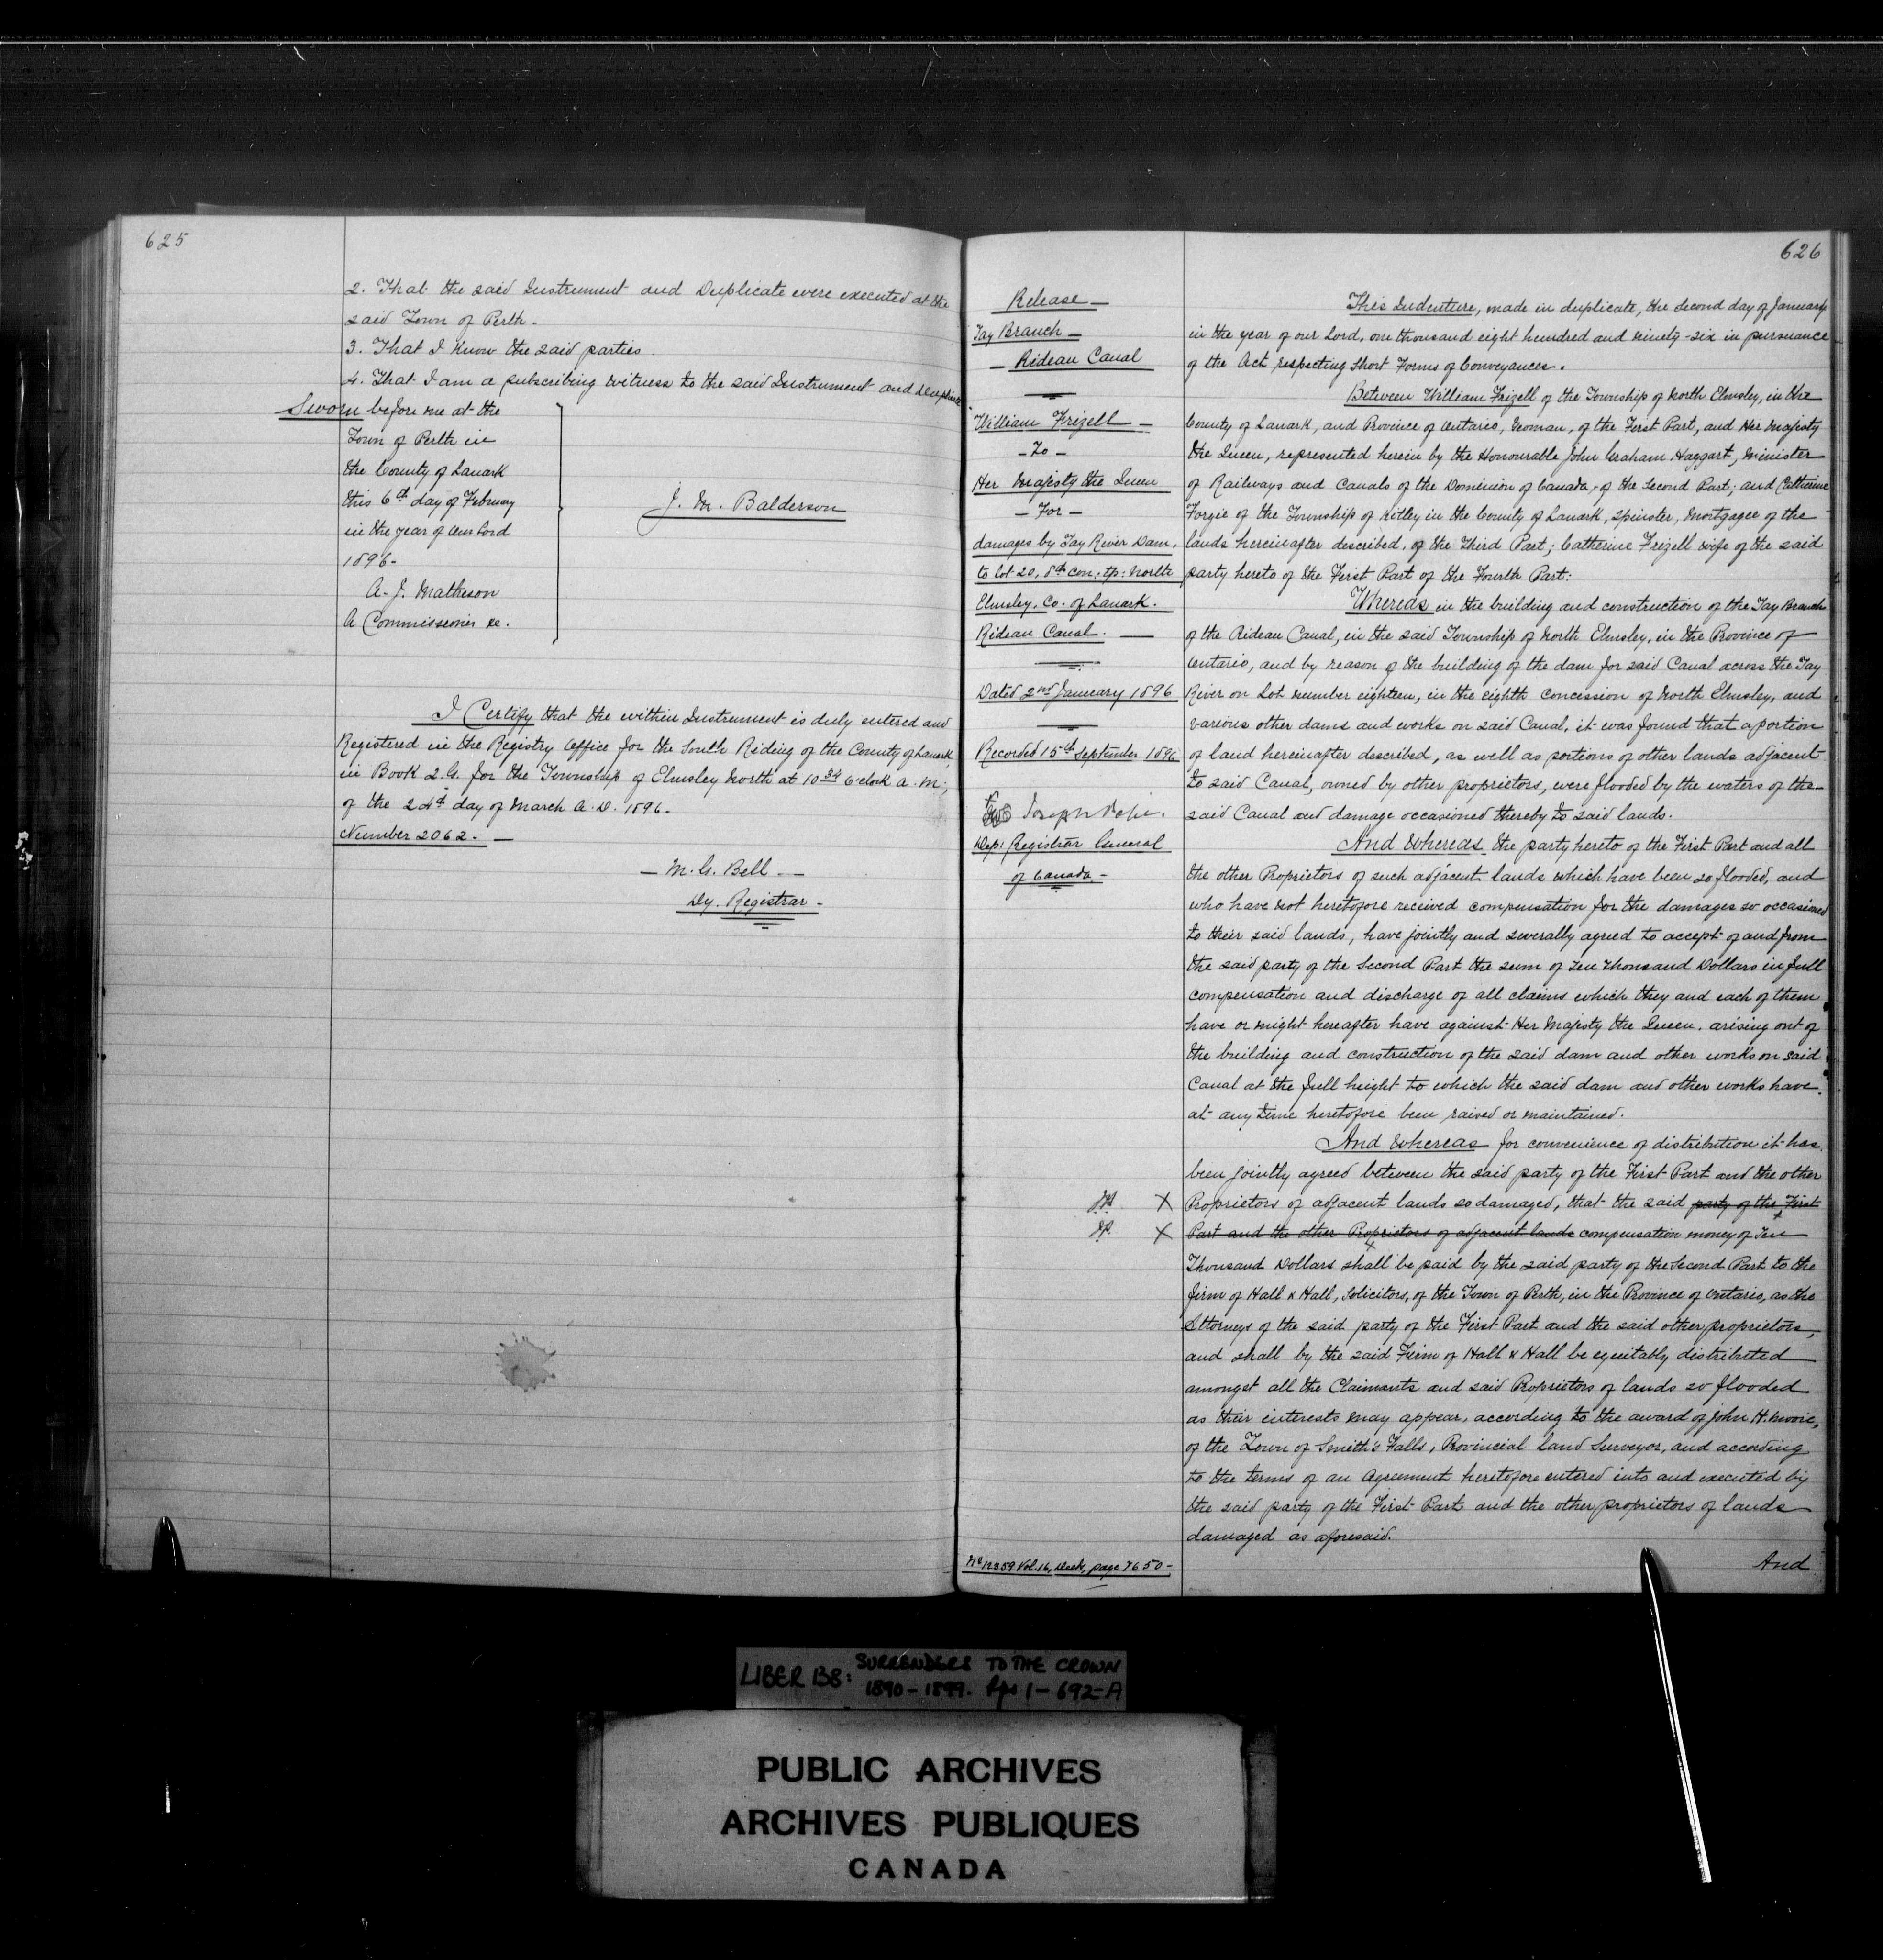 625
2. That the said Instrument and Duplicate were executed at the
said Town of Perth -
3. That I know the said parties
4. That I am a subscribing witness to the said Instrument and Duplicate
Sworn before me at the
Town of Perth in
the County of Lanark
this 6th day of February
in the year of Our Lord
1896 -
A. J. Matheson
A Commissioner &c.
J. M. Balderson
I Certify that the within Instrument is duly entered and
Registered in the Registry Office for the South Riding of the County of Lanark
in Book 2.G. for the Township of Elmsley North at 10 34 O'clock A. M.,
of the 24th day of March A. D. 1896 -
Number 2062 - —
— M. G. Bell - —
Dy. Registrar -
626
Release —
Tay Branch —
— Rideau Canal
William Frizell —
- To -
Her Majesty the Queen
- For -
damages by Tay River Dam,
to lot 20, 8th Con: tp: North
Elmsley, Co. of Lanark.
Rideau Canal. —
Dated 2nd January 1896
Recorded 15th September 1896
Joseph Pope.
Dep: Registrar General
of Canada -
No 12359 Vol. 16, Deek, page 7650 -
This Indenture, made in duplicate, the second day of January
in the year of our Lord, one thousand eight hundred and ninety-six in pursuance
of the Act respecting Short Forms of Conveyances.
Between William Frizell of the Township of North Elmsley, in the
County of Lanark, and Province of Ontario, Yeoman, of the First Part, and Her Majesty
the Queen, represented herein by the Honourable John Graham Haggart, Minister
of Railways and Canals of the Dominion of Canada, of the Second Part; and Catherine
Forgie of the Township of Kitley in the County of Lanark, Spinster, Mortgagee of the
lands hereinafter described, of the Third Part; Catherine Frizell wife of the said
party hereto of the First Part of the Fourth Part:
Whereas in the building and construction of the Tay Branch
of the Rideau Canal, in the said Township of North Elmsley, in the Province of
Ontario, and by reason of the building of the dam for said Canal across the Tay
River on Lot number eighteen, in the eighth Concession of North Elmsley, and
various other dams and works on said Canal, it was found that a portion
of land hereinafter described, as well as portions of other lands adjacent
to said Canal, owned by other proprietors, were flooded by the waters of the
said Canal and damage occasioned thereby to said lands.
And Whereas the party hereto of the First Part and all
the other Proprietors of such adjacent lands which have been so flooded, and
who have not heretofore received compensation for the damages so occasioned
to their said lands, have jointly and severally agreed to accept of and from
the said party of the Second Part the sum of Ten Thousand Dollars in full
compensation and discharge of all claims which they and each of them
have or might hereafter have against Her Majesty the Queen, arising out of
the building and construction of the said dam and other works on said
Canal at the full height to which the said dam and other works have
at any time heretofore been raised or maintained.
And Whereas for convenience of distribution it has
been jointly agreed between the said party of the First Part and the other
X Proprietors of adjacent lands so damaged, that the said party of the First
X Part and the other Proprietors of adjacent lands compensation money of Ten
Thousand Dollars shall be paid by the said party of the Second Part to the
firm of Hall & Hall, Solicitors, of the Town of Perth, in the Province of Ontario, as the
Attorneys of the said party of the First Part and the said other proprietors,
and shall by the said Firm of Hall & Hall be equitably distributed
amongst all the Claimants and said Proprietors of lands so flooded
as their interests may appear, according to the award of John H. Moore,
of the Town of Smith's Falls, Provincial Land Surveyor, and according
to the terms of an Agreement heretofore entered into and executed by
the said party of the First Part and the other proprietors of lands
damaged as aforesaid.
And
LIBER 138: SURRENDERS TO THE CROWN
1890 - 1899. Pps 1 - 692-A
PUBLIC ARCHIVES
ARCHIVES PUBLIQUES
CANADA